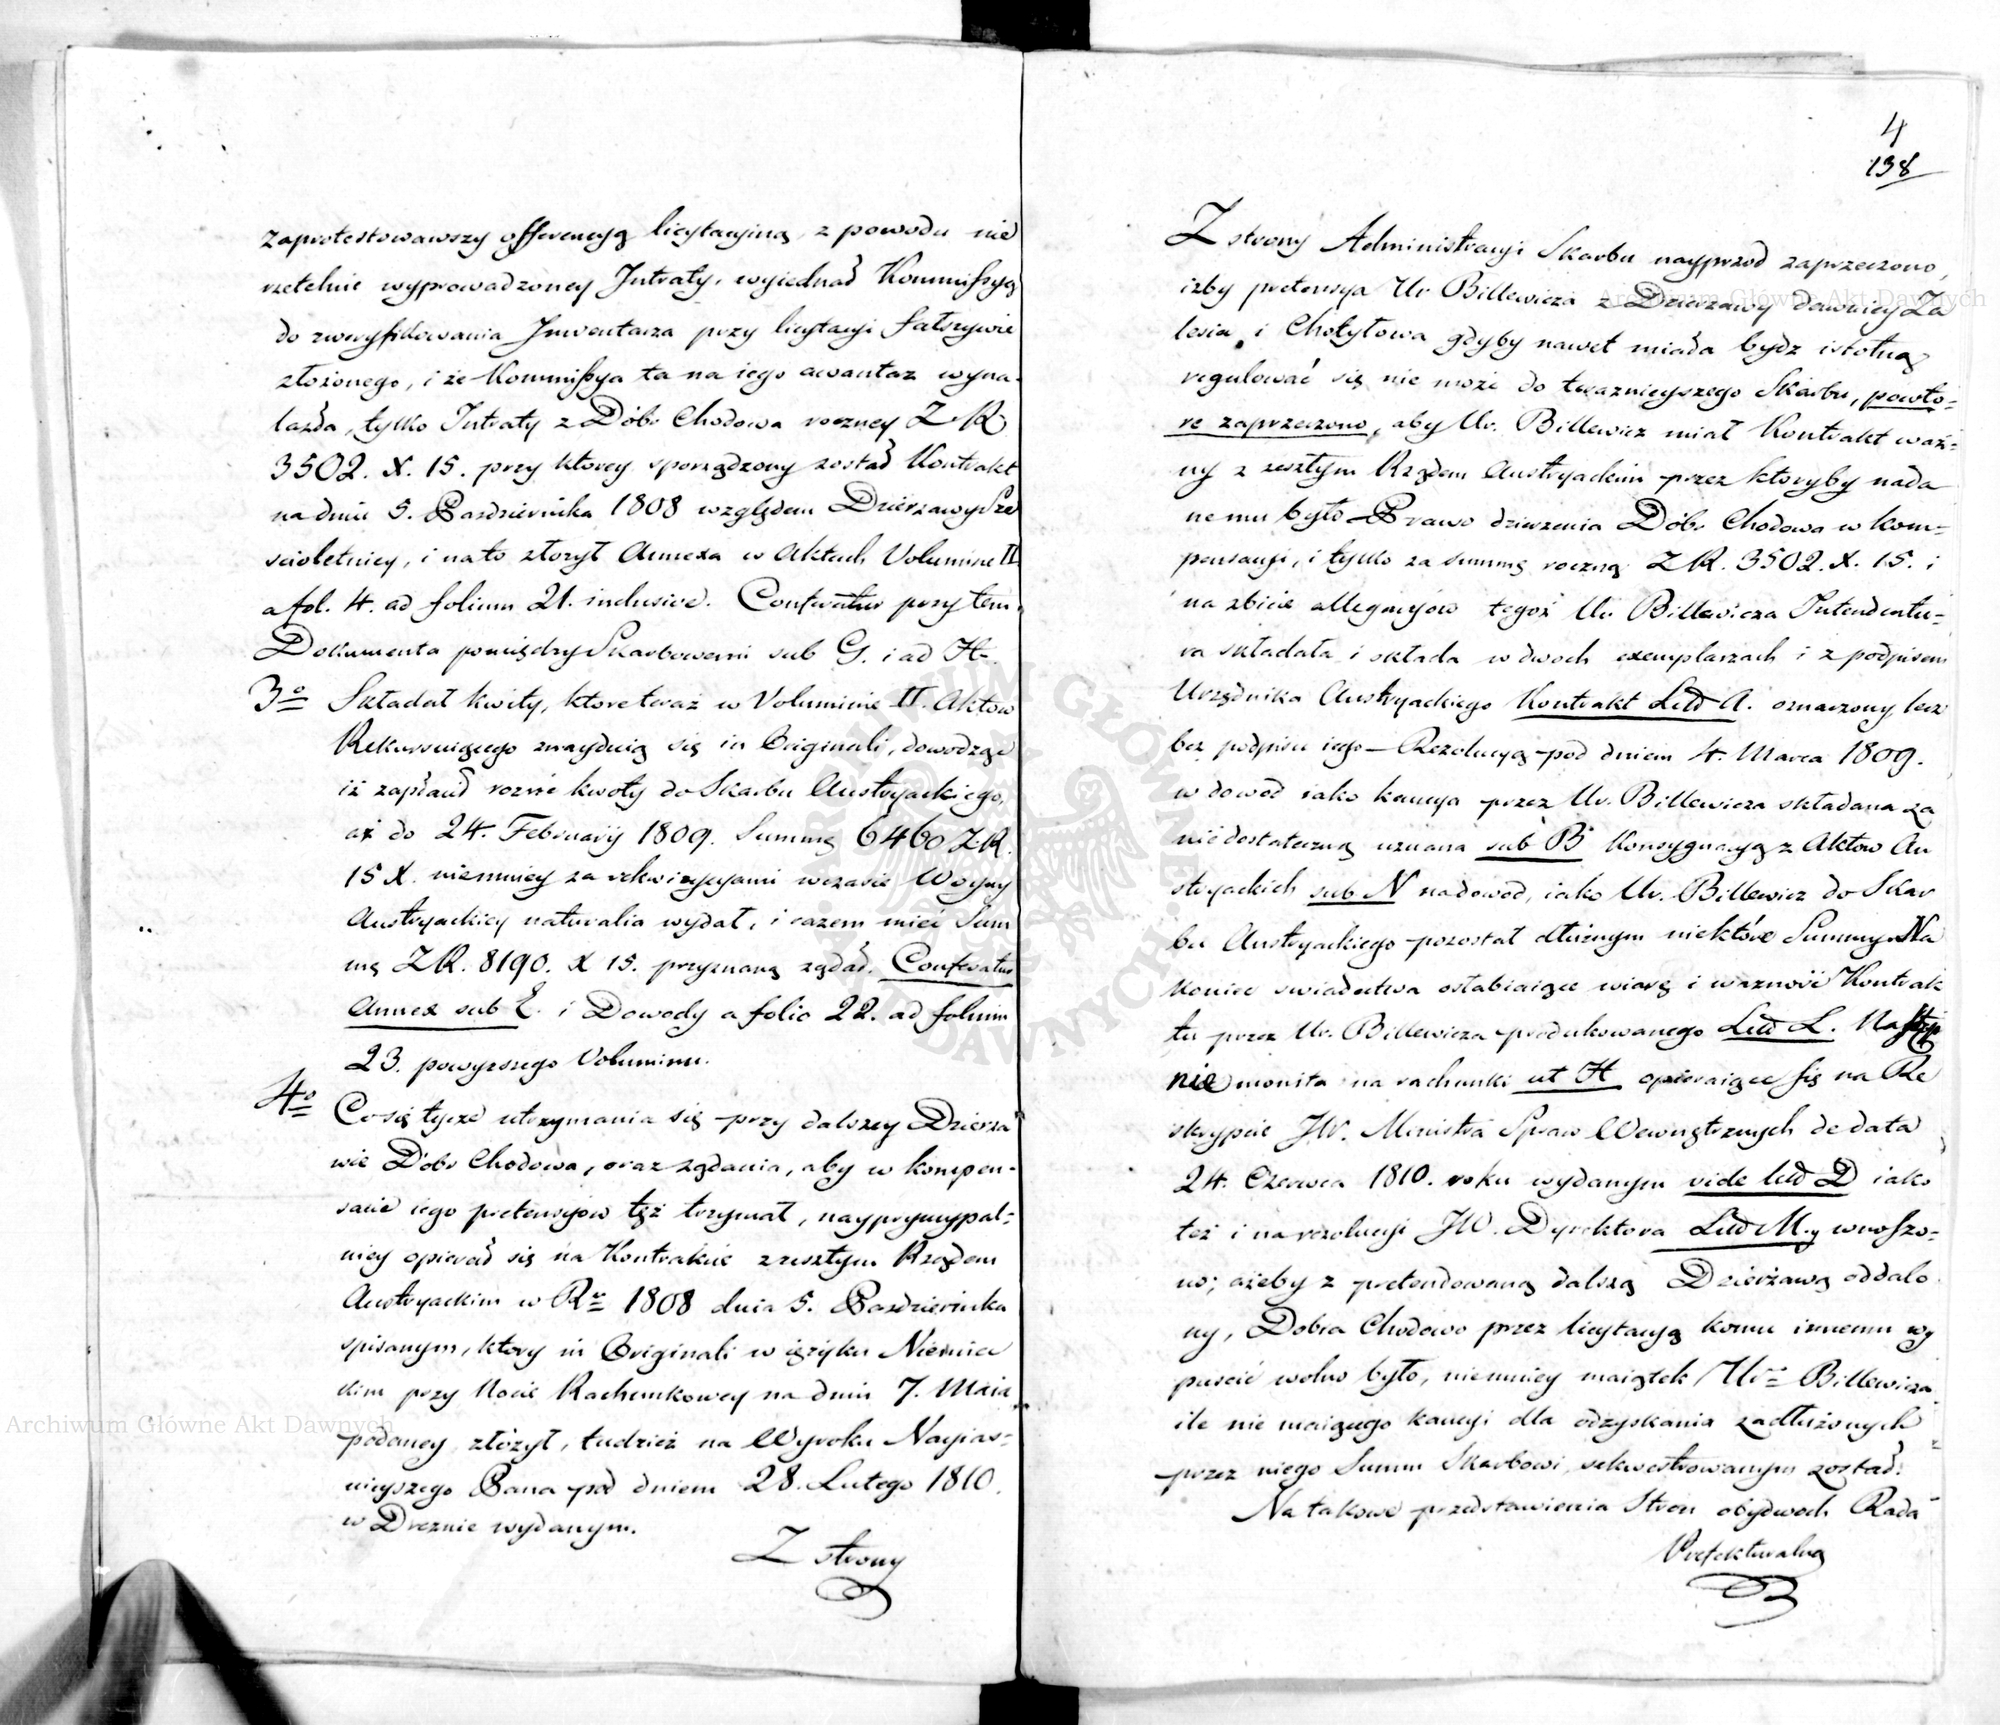 zaprotestowawszy offerencyą licytacyiną z powodu nie
rzetelnie wyprowadzoney Intraty, wyiednał Kommissyą
do zweryfikowania Inwentarza przy licytacyi fałszywie
złożonego, i że Kommissya ta na iego awantaz wyna-
lazła, tylko Intraty z Dóbr Chodowa roczney ZR
3502. X. 15. przy ktorey sporządzony został Kontrakt
na dniu 5. Pazdziernika 1808 względem Dzierzawy Sze
scioletniey, i na to złozył Annexa w Aktach Volumine II
a fol. 4. ad folium 21. inclusive. Conferatur przy tem
Dokumenta pomiędzy Skarbowemi sub G. i ad H.
3o Składał kwity, ktore teraz w Voluminie II. Aktow
Rekursuiącego znayduią się in Originali, dowodząc
iż zapłacił rożne kwoty do Skarbu Austryackiego,
aż do 24. Februarÿ 1809. Summę 6460 ZR.
15 X. niemniey za rekwizycyami wczasie Woyny
Austryackiey naturalia wydał, i razem mieć Sum
mę ZR. 8190. X 15. przyznaną żądał. Conferatur
Annex sub E. i Dowody a folio 22. ad folium
23. powyzszego Voluminu.
4o Co się tycze utrzymania się przy dalszey Dzierza
wie Dobr Chodowa, oraz żądania, aby w kompen-
sacie iego pretensyow też trzymał, nayprymcypal-
niey opierał się na Kontrakcie zeszłym Rządem
Austryackim w Ro 1808 dnia 5. Pazdziernika
spisanym, ktory in Originali w ięzyku Niemiec
kim przy Nocie Rachunkowey na dniu 7. Maia
podaney złożył, tudzież na Wyroku Nayias-
nieyszego Pana pod dniem 28. Lutego 1810.
w Dreznie wydanym.
Z strony
4
138
Z strony Administracyi Skarbu nayprzod zaprzeczono,
iżby pretensya Ur Billewicza z Dzierzawy dawniey Za
lesia i Chołytowa gdyby nawet miała bydz istotną
regulować się nie może do teraznieyszego Skarbu, powto-
re zaprzeczono, aby Ur. Billewicz miał Kontrakt waż-
ny z zeszłym Rządem Austryackim przez ktoryby nada
ne mu było Prawo dzierzenia Dóbr Chodowa w kom-
pensacyi, i tylko za summę roczną ZR. 3502. X. 15. i
na zbicie allegacyów tegoż Ur. Billewicza Intendentu-
ra składała i składa w dwoch exemplarzach i z podpisem
Urzędnika Austryackiego Kontrakt Litt A. oznaczony, lecz
bez podpisu iego — Rezolucyą pod dniem 4. Marca 1809.
w dowod iako kaucya przez Ur. Billewicza składana za
niedostateczną uznana sub B Konsygnacyą z Aktow Au
stryackich sub N na dowod, iako Ur. Billewicz do Skar
bu Austryackiego pozostał dłużnym niektóre Summy. Na
koniec swiadectwa osłabiaiące wiarę i ważność Kontrak
tu przez Ur. Billewicza produkowanego Litt L. Następ
nie monita na rachunki ut H opieraiące się na Re
skrypcie JW. Ministra Spraw Wewnętrznych de data
24. Czerwca 1810. roku wydanym vide litt D iako
też i na rezolucyi JW. Dyrektora Litt M., wnoszo-
no; ażeby z pretendowaną dalszą Dzierżawą oddalo
ny, Dobra Chodowo przez licytacyą komu innemu wy
puscić wolno było, niemniey maiątek Uro Billewicza
ile nie maiącego kaucyi dla odzyskania zadłużonych
przez niego Summ Skarbowi, sekwestrowanym został.
Na takowe przedstawienia Stron obydwoch Rada
Prefekturalna
Archiwum Główne Akt Dawnych
Archiwum Główne Akt Dawnych
ARCHIWUM GŁÓWNE AKT DAWNYCH